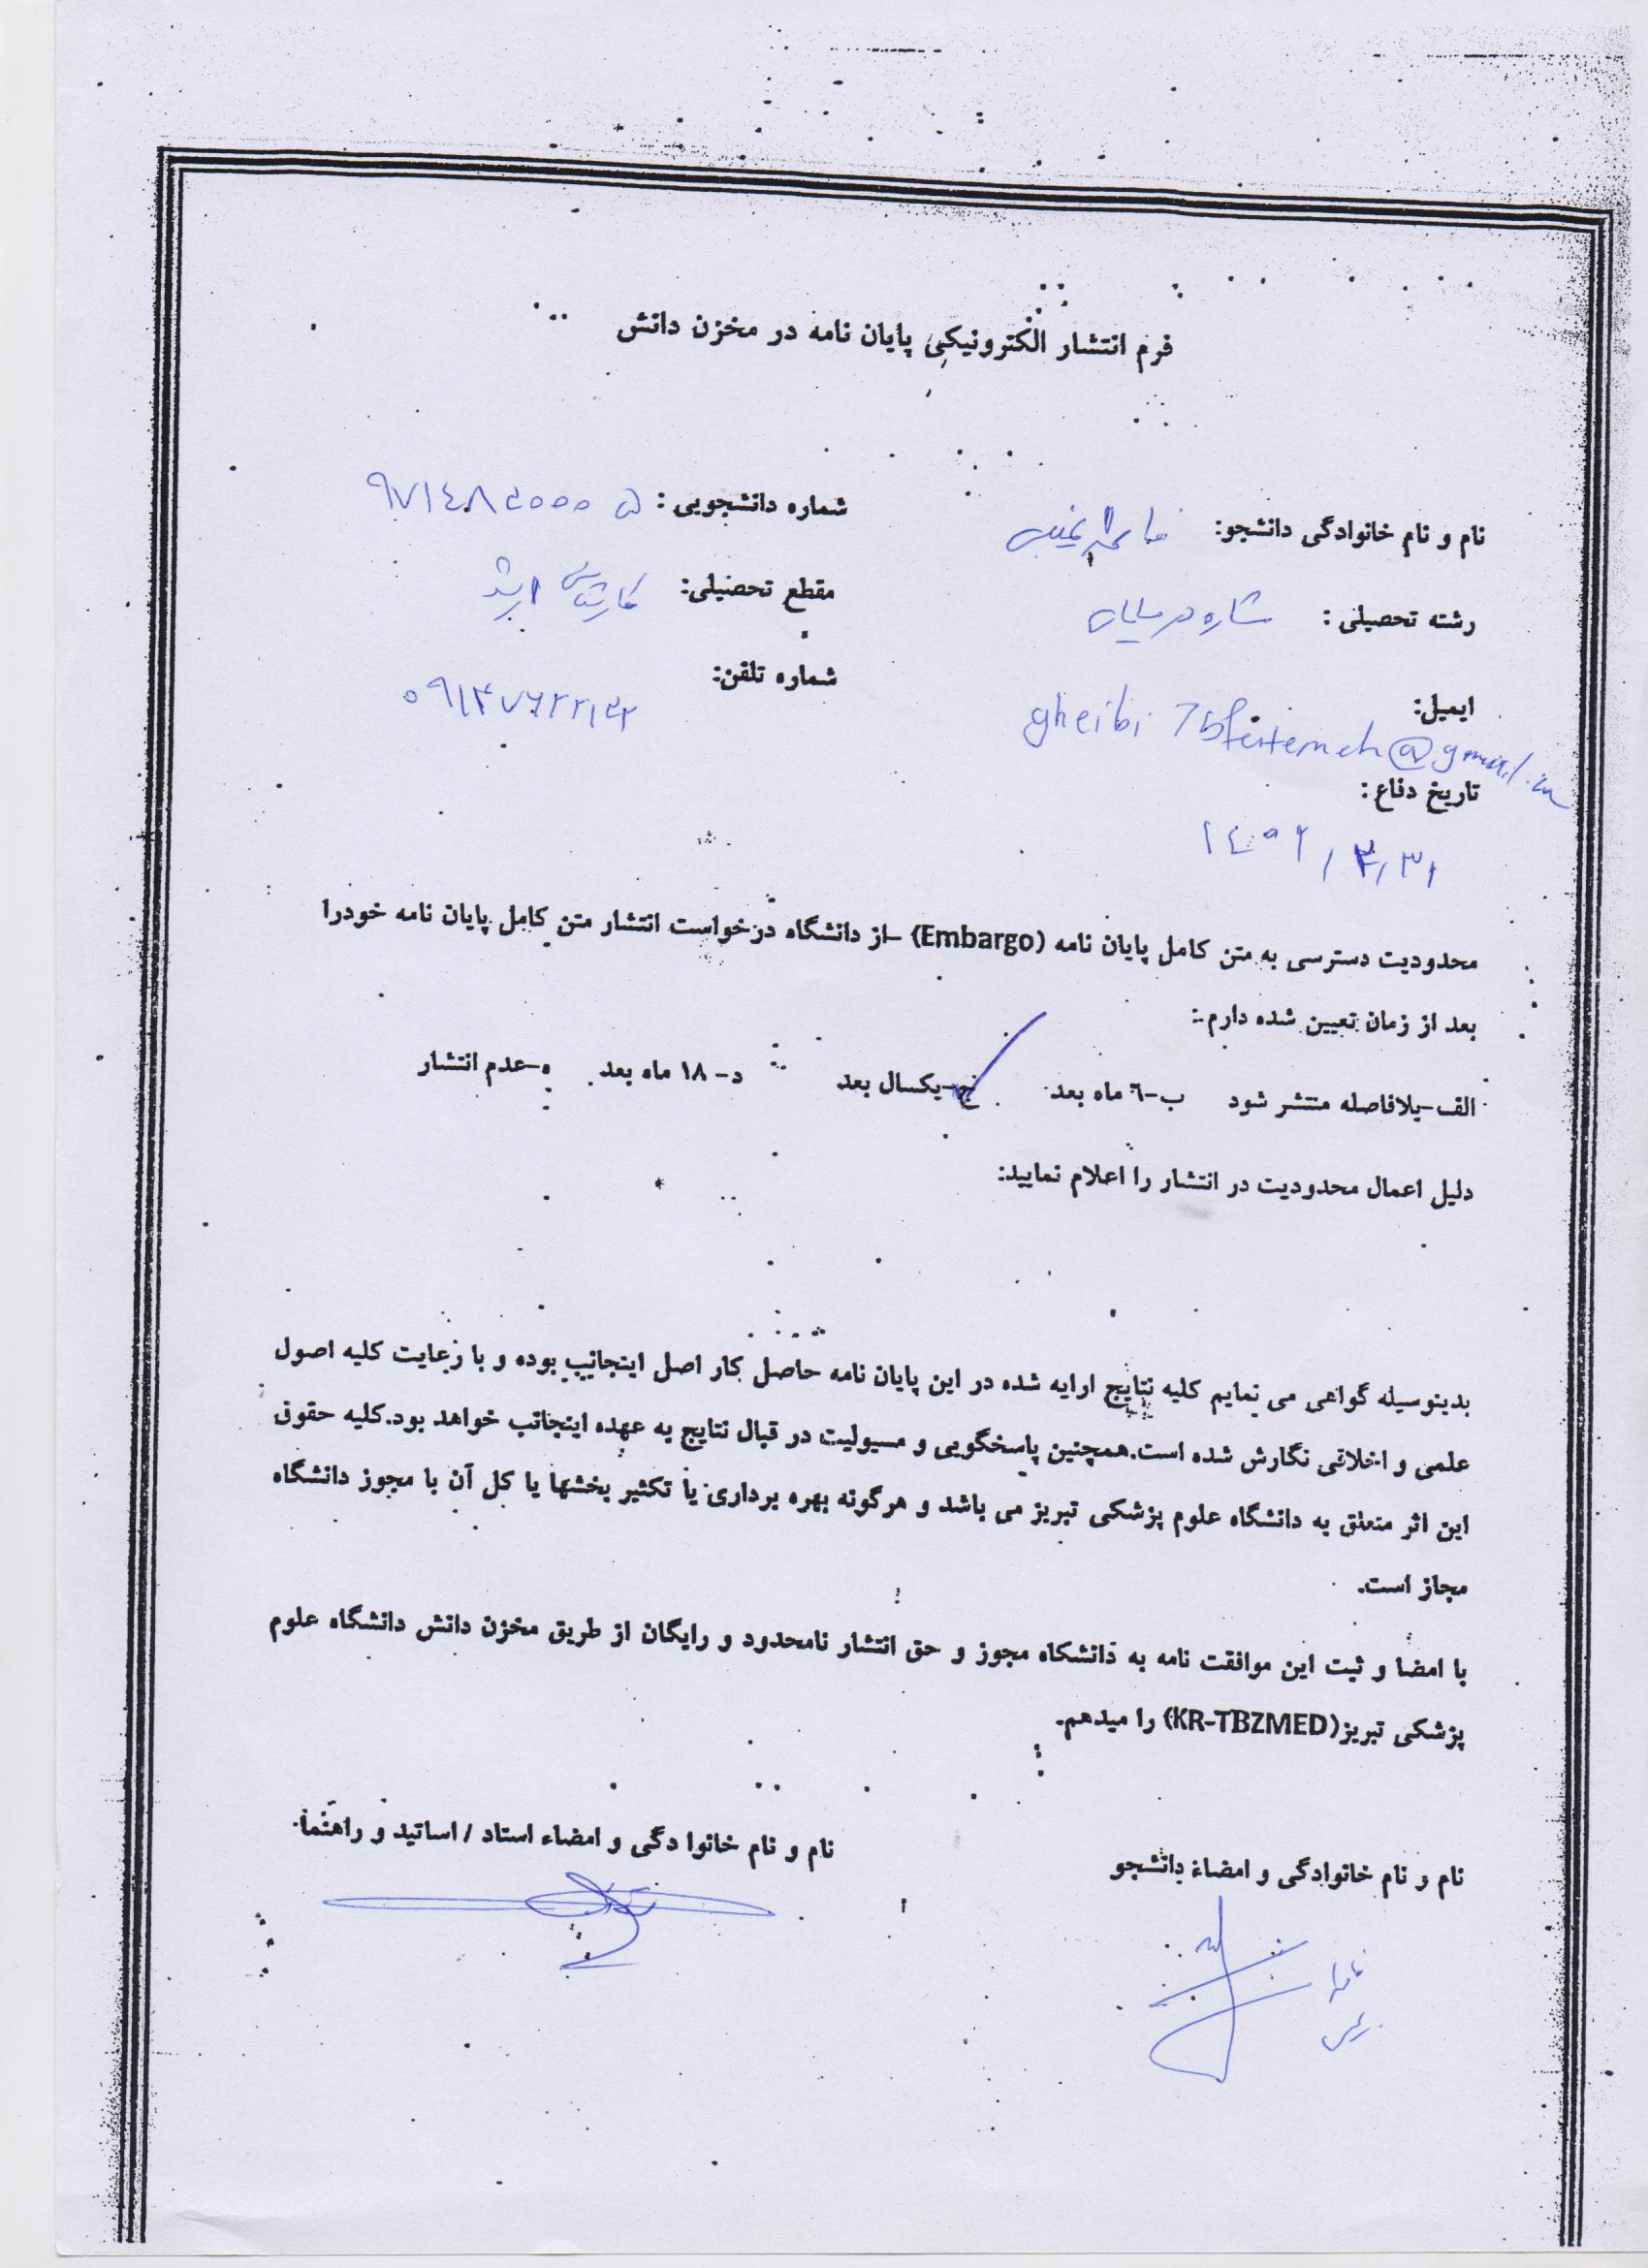 فرم انتشار الکترونیکی پایان نامه در مخزن دانش
نام و نام خانوادگی دانشجو: شماره دانشجویی :
رشته تحصیلی : مقطع تحصیلی: کارشناسی ارشد
ایمیل: شماره تلفن:
gheibi 75fatemeh@gmail.
تاریخ دفاع :
محدودیت دسترسی به متن کامل پایان نامه (Embargo) -از دانشگاه درخواست انتشار متن کامل پایان نامه خودرا
بعد از زمان تعیین شده دارم:
الف-بلافاصله منتشر شود ب-٦ ماه بعد ج-یکسال بعد د- ١٨ ماه بعد ه-عدم انتشار
دلیل اعمال محدودیت در انتشار را اعلام نمایید:
بدینوسیله گواهی می نمایم کلیه نتایج ارایه شده در این پایان نامه حاصل کار اصل اینجانب بوده و با رعایت کلیه اصول
علمی و اخلاقی نگارش شده است.همچنین پاسخگویی و مسیولیت در قبال نتایج به عهده اینجانب خواهد بود.کلیه حقوق
این اثر متعلق به دانشگاه علوم پزشکی تبریز می باشد و هرگونه بهره برداری یا تکثیر بخشها یا کل آن با مجوز دانشگاه
مجاز است.
با امضا و ثبت این موافقت نامه به دانشگاه مجوز و حق انتشار نامحدود و رایگان از طریق مخزن دانش دانشگاه علوم
پزشکی تبریز(KR-TBZMED) را میدهم.
نام و نام خانوادگی و امضاء دانشجو نام و نام خانوا دگی و امضاء استاد / اساتید و راهنما